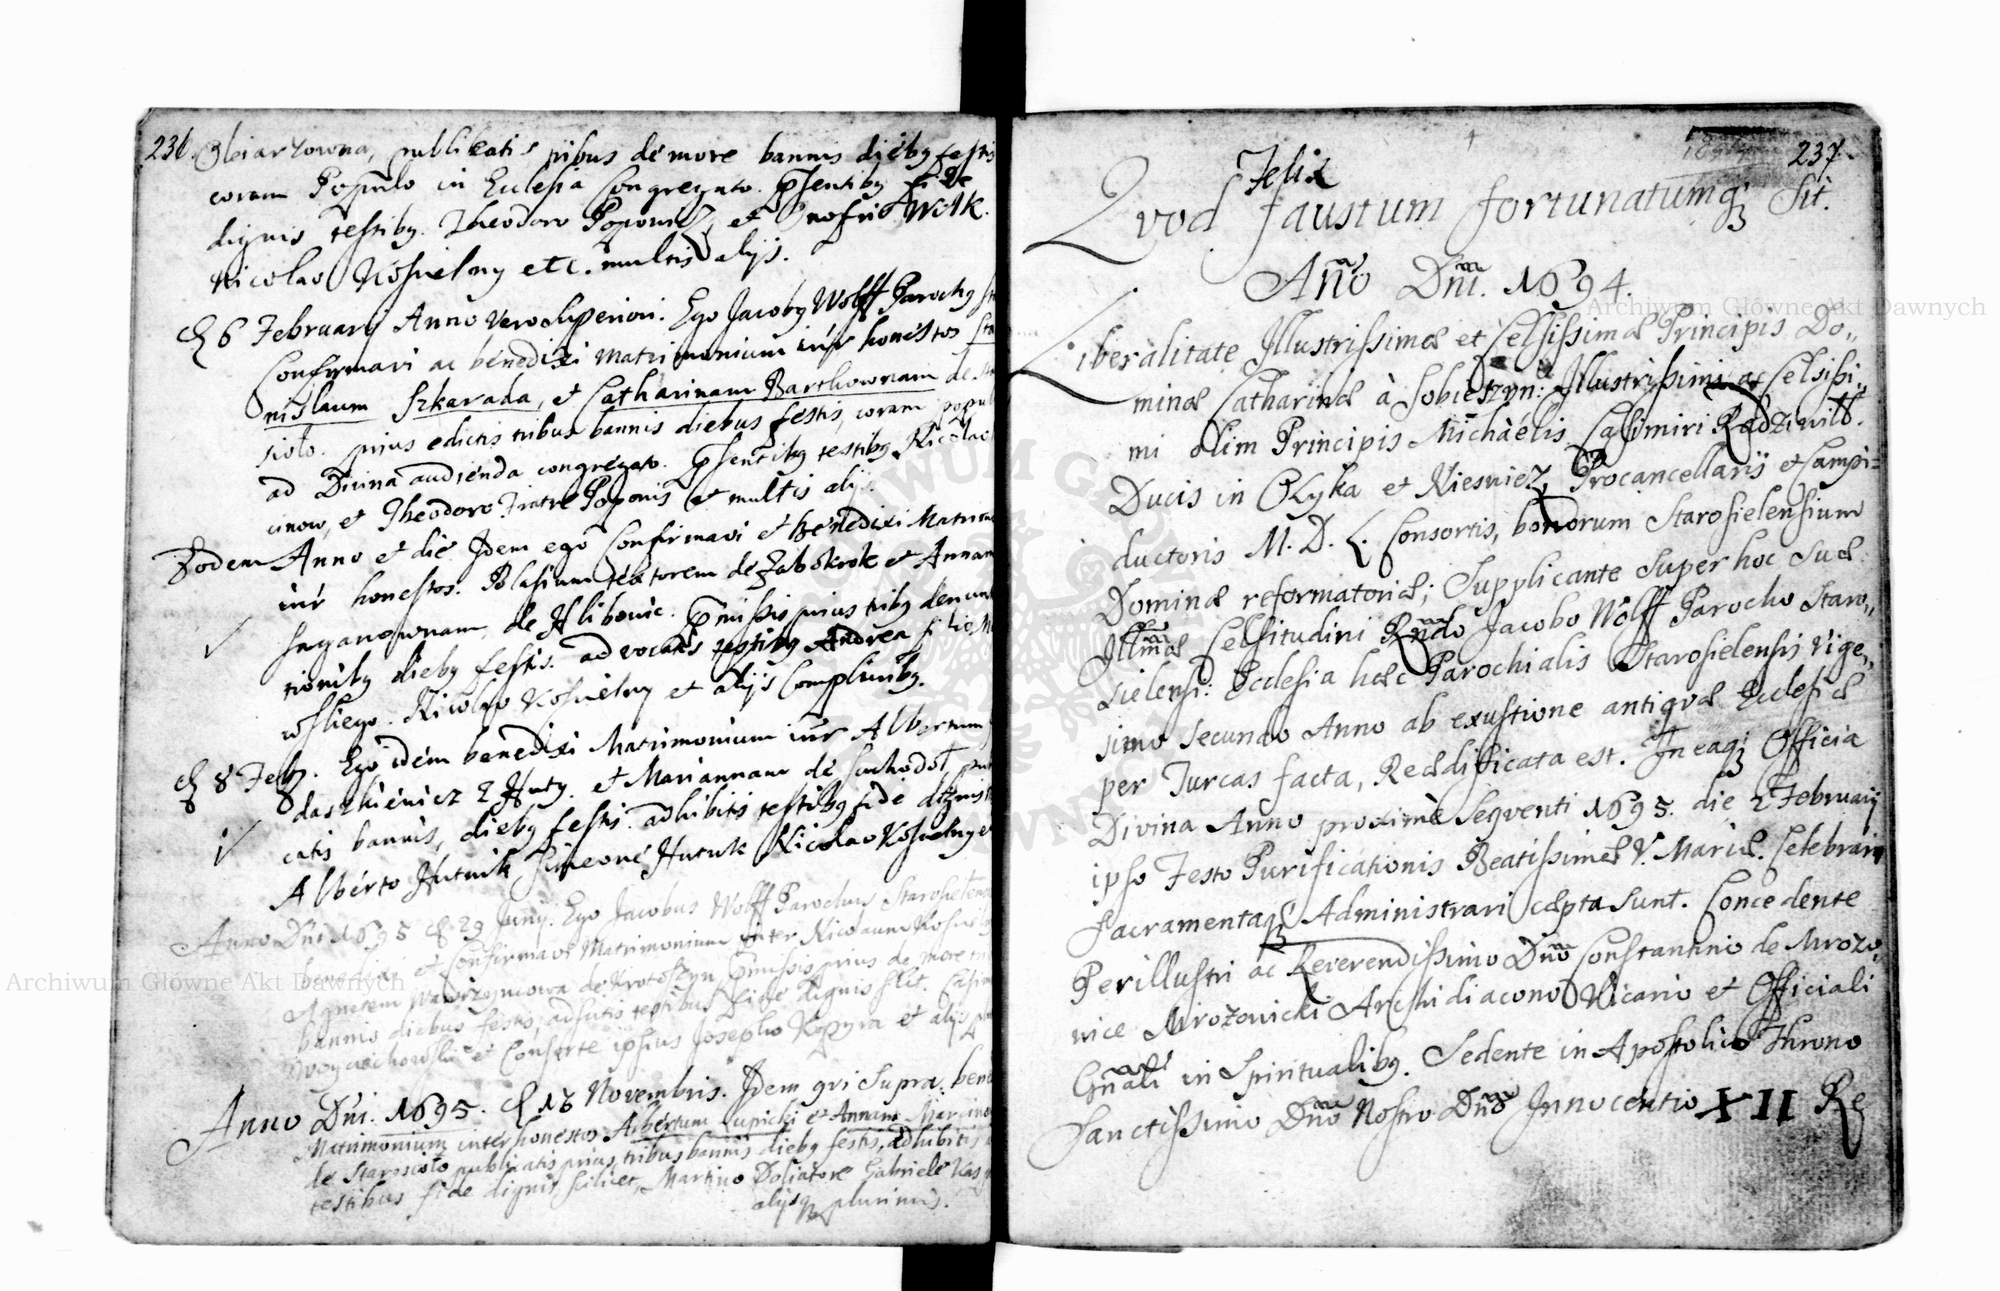 236.
Oleiarzowna, publicatis pribus de more bannis dieby festis
coram Populo in Eclesia Congregato. Psentiby fide
dignis testiby. Theodoro Popowicz, et Onofri Awelk.
Nicolao Kosielny etc. multis alijs.
D 6 February Anno vero superiori. Ego Jacoby Wolff Parochy
Confirmavi ac benedixi matrimonium intr honestos Sta
nislaum Szkarada, et Catharinam Barthownam de
siolo. prius edictis tribus bannis diebus festis, coram popul
ad Divina audienda congregato. Psentiby testiby Nicolao
cinow, et Theodoro Fratre Poponis et multis alijs.
Eodem Anno et die Idem ego Confirmavi et Benedixi Matrimo
intr honestos. Blasium textorem de Zabokrok et Annam
Saganownam, de Hlibowic. Pmissis prius triby denun
tioniby dieby festis. advocatis testiby Andrea filio
wskiego. Nicolao Kosielny et alijs Compluriby.
D 8 Feby. Ego idem benedixi Matrimonium intr Albertum
daszkiewicz Z Huty. et Mariannam de Suchodoł
catis bannis, dieby festis. adhibitis testiby fide dignis
Alberto Hutnik Simeone Hutnik Nicolao Kosielny et
Anno Dni 1695 D 29 Juny. Ego Jacobus Wolff Parochus Starosielen
benedixi et Confirmavi Matrimonium inter Nicolaum Kosielny
Agnetem Wawrzyncowa de Krotoszyn, Pmissis prius de more
bannis diebus festis, adscitis testibus fide dignis slit. Casim
Woyciechowskie et Consorte ipsius Josepho Kopyra et alijs
Anno Dni. 1695. D 18 Novembris. Idem qvi supra. bene
Matrimonium inter honestos Albertum Lupicki et Annam Marcino
de Starosioło publicatis prius tribus bannis dieby festis, adhibitis
testibus fide dignis, scilicet, Martino Doliatore Gabriele Kas
alijsqz plurimis.
237.
Felix
Qvod faustum fortunatumqz Sit.
Ano Dni. 1694.
Liberalitate Illustrissimæ et Celsissimæ Principis Do,,
minæ Catharinæ à Sobieszyn: Illustrissimi ac Celsissi,,
mi olim Principis Michaelis Casimiri Radziwiłł.
Ducis in Olyka et Niesviez, Procancellarij et Campi=
ductoris M. D. L. Consortis, bonorum Starosielensium
Dominæ reformatoriæ; Supplicante Super hoc Suæ
Illmæ Celsitudini Rndo Jacobo Wolff Parocho Staro,,
sielensi: Ecclesia hæc Parochialis Starosielensis vige,,
simo Secundo Anno ab exustione antiqvæ Ecclesiæ
per Turcas facta, Reædificata est. In eaqz Officia
Divina Anno proximè Seqventi 1695. die 2 February
ipso Festo Purificationis Beatissimæ V. Mariæ. Celebrari
Sacramentaqz Administrari cæpta Sunt. Concedente
Perillustri ac Reverendissimo Dno Constantino de Mrozo,,
wice Mrozowicki Archidiacono Vicario et Officiali
Gnali in Spiritualiby. Sedente in Apostolico Throno
Sanctissimo Dno Nostro Dno Innocentio XII Re
Archiwum Główne Akt Dawnych
Archiwum Główne Akt Dawnych